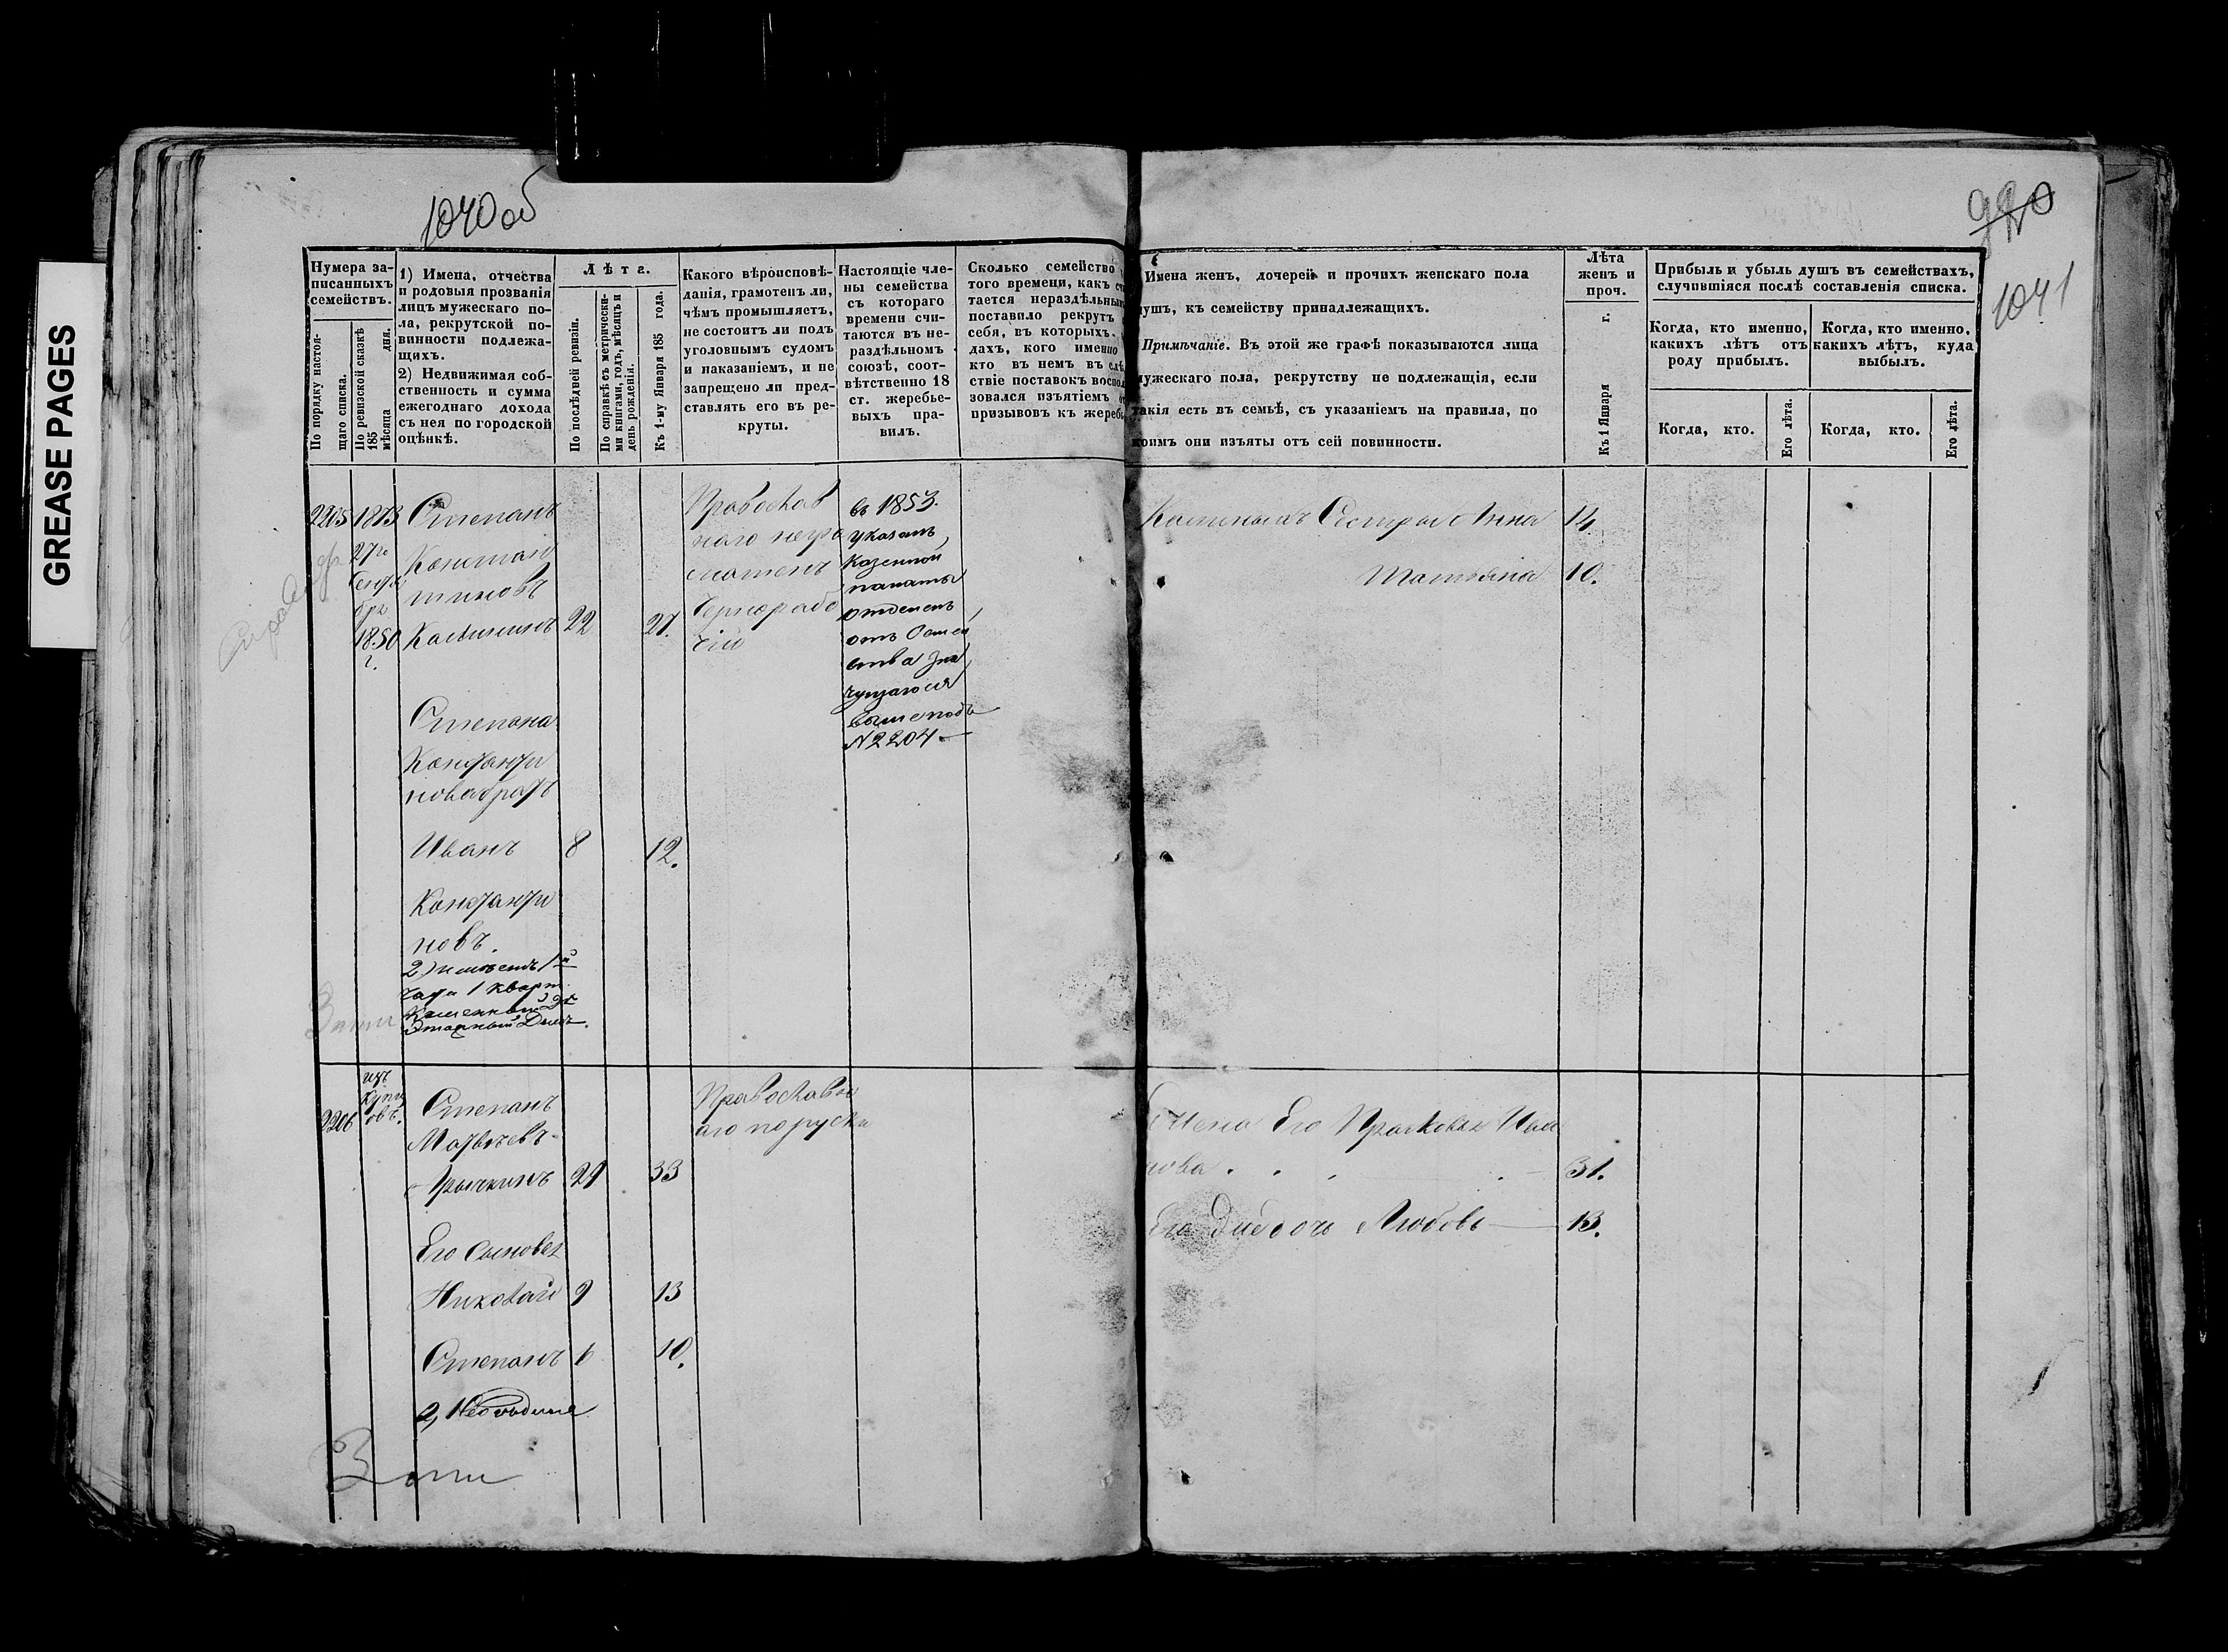 GREASE PAGES
1040 об
990
1041
Нумера за-
писанныхъ
семействъ.
По порядку настоя-
щаго списка.
По ревизской сказкѣ
185 мѣсяца дня.
1) Имена, отчества
и родовыя прозванія
лицъ мужескаго по-
ла, рекрутской по-
винности подлежа-
щихъ.
2) Недвижимая соб-
ственность и сумма
ежегоднаго дохода
съ нея по городской
оцѣнкѣ.
Лѣта.
По послѣдней ревизіи.
По справкѣ съ метрически-
ми книгами, годъ, мѣсяцъ и
день рожденія.
Къ 1-му Января 185 года.
Какого вѣроисповѣ-
данія, грамотенъ ли,
чѣмъ промышляетъ,
не состоитъ ли подъ
уголовнымъ судомъ
и наказаніемъ, и не
запрещено ли пред-
ставлять его въ ре-
круты.
Настоящіе чле-
ны семейства
съ котораго
времени счи-
таются въ не-
раздѣльномъ
союзѣ, соот-
вѣтственно 18
ст. жеребье-
выхъ пра-
вилъ.
Сколько семейство
того времени, какъ сч
тается нераздѣльным
поставило рекрутъ
себя, въ которыхъ
дахъ, кого именно
кто въ немъ въ слѣ
ствіе поставокъ воспол
зовался изъятіемъ о
призывовъ къ жереб
Имена женъ, дочерей и прочихъ женскаго пола
душъ, къ семейству принадлежащихъ.
Примѣчаніе. Въ этой же графѣ показываются лица
мужескаго пола, рекрутству не подлежащія, если
такія есть въ семьѣ, съ указаніемъ на правила, по
коимъ они изъяты отъ сей повинности.
Лѣта
женъ и
проч.
Къ 1 Января г.
Прибыль и убыль душъ въ семействахъ,
случившіяся послѣ составленія списка.
Когда, кто именно,
какихъ лѣтъ отъ
роду прибылъ.
Когда, кто именно,
какихъ лѣтъ, куда
выбылъ.
Когда, кто.
Его лѣта.
Когда, кто.
Его лѣта.
2205 1873 Степанъ
27го Констан
Сентя тиновъ
бря
1850 22 27.
г.
Православ
наго негра
мотенъ
Чернорабо
чій
въ 1853.
указомъ
Казенной
палаты
отделенъ
отъ Семей
ства зна
чущагося
выше подъ
N 2204
Сестры Анна 14.
Татьяна 10.
Степана
Константи
нова братъ
Иванъ 8 12.
Константи
новъ.
2) имѣетъ 1й
части 1 кварт.
Каменный 2х
Этажный Домъ.
2206 изъ
Купц
овъ.
Степанъ
Матвѣевъ
29 33
Православн
аго по руски
Жена Его Прасковья Ива
нова 31.
Его дочь Любовь 13.
Его Сыновья
Николай 9 13
Степанъ 6 10.
2,